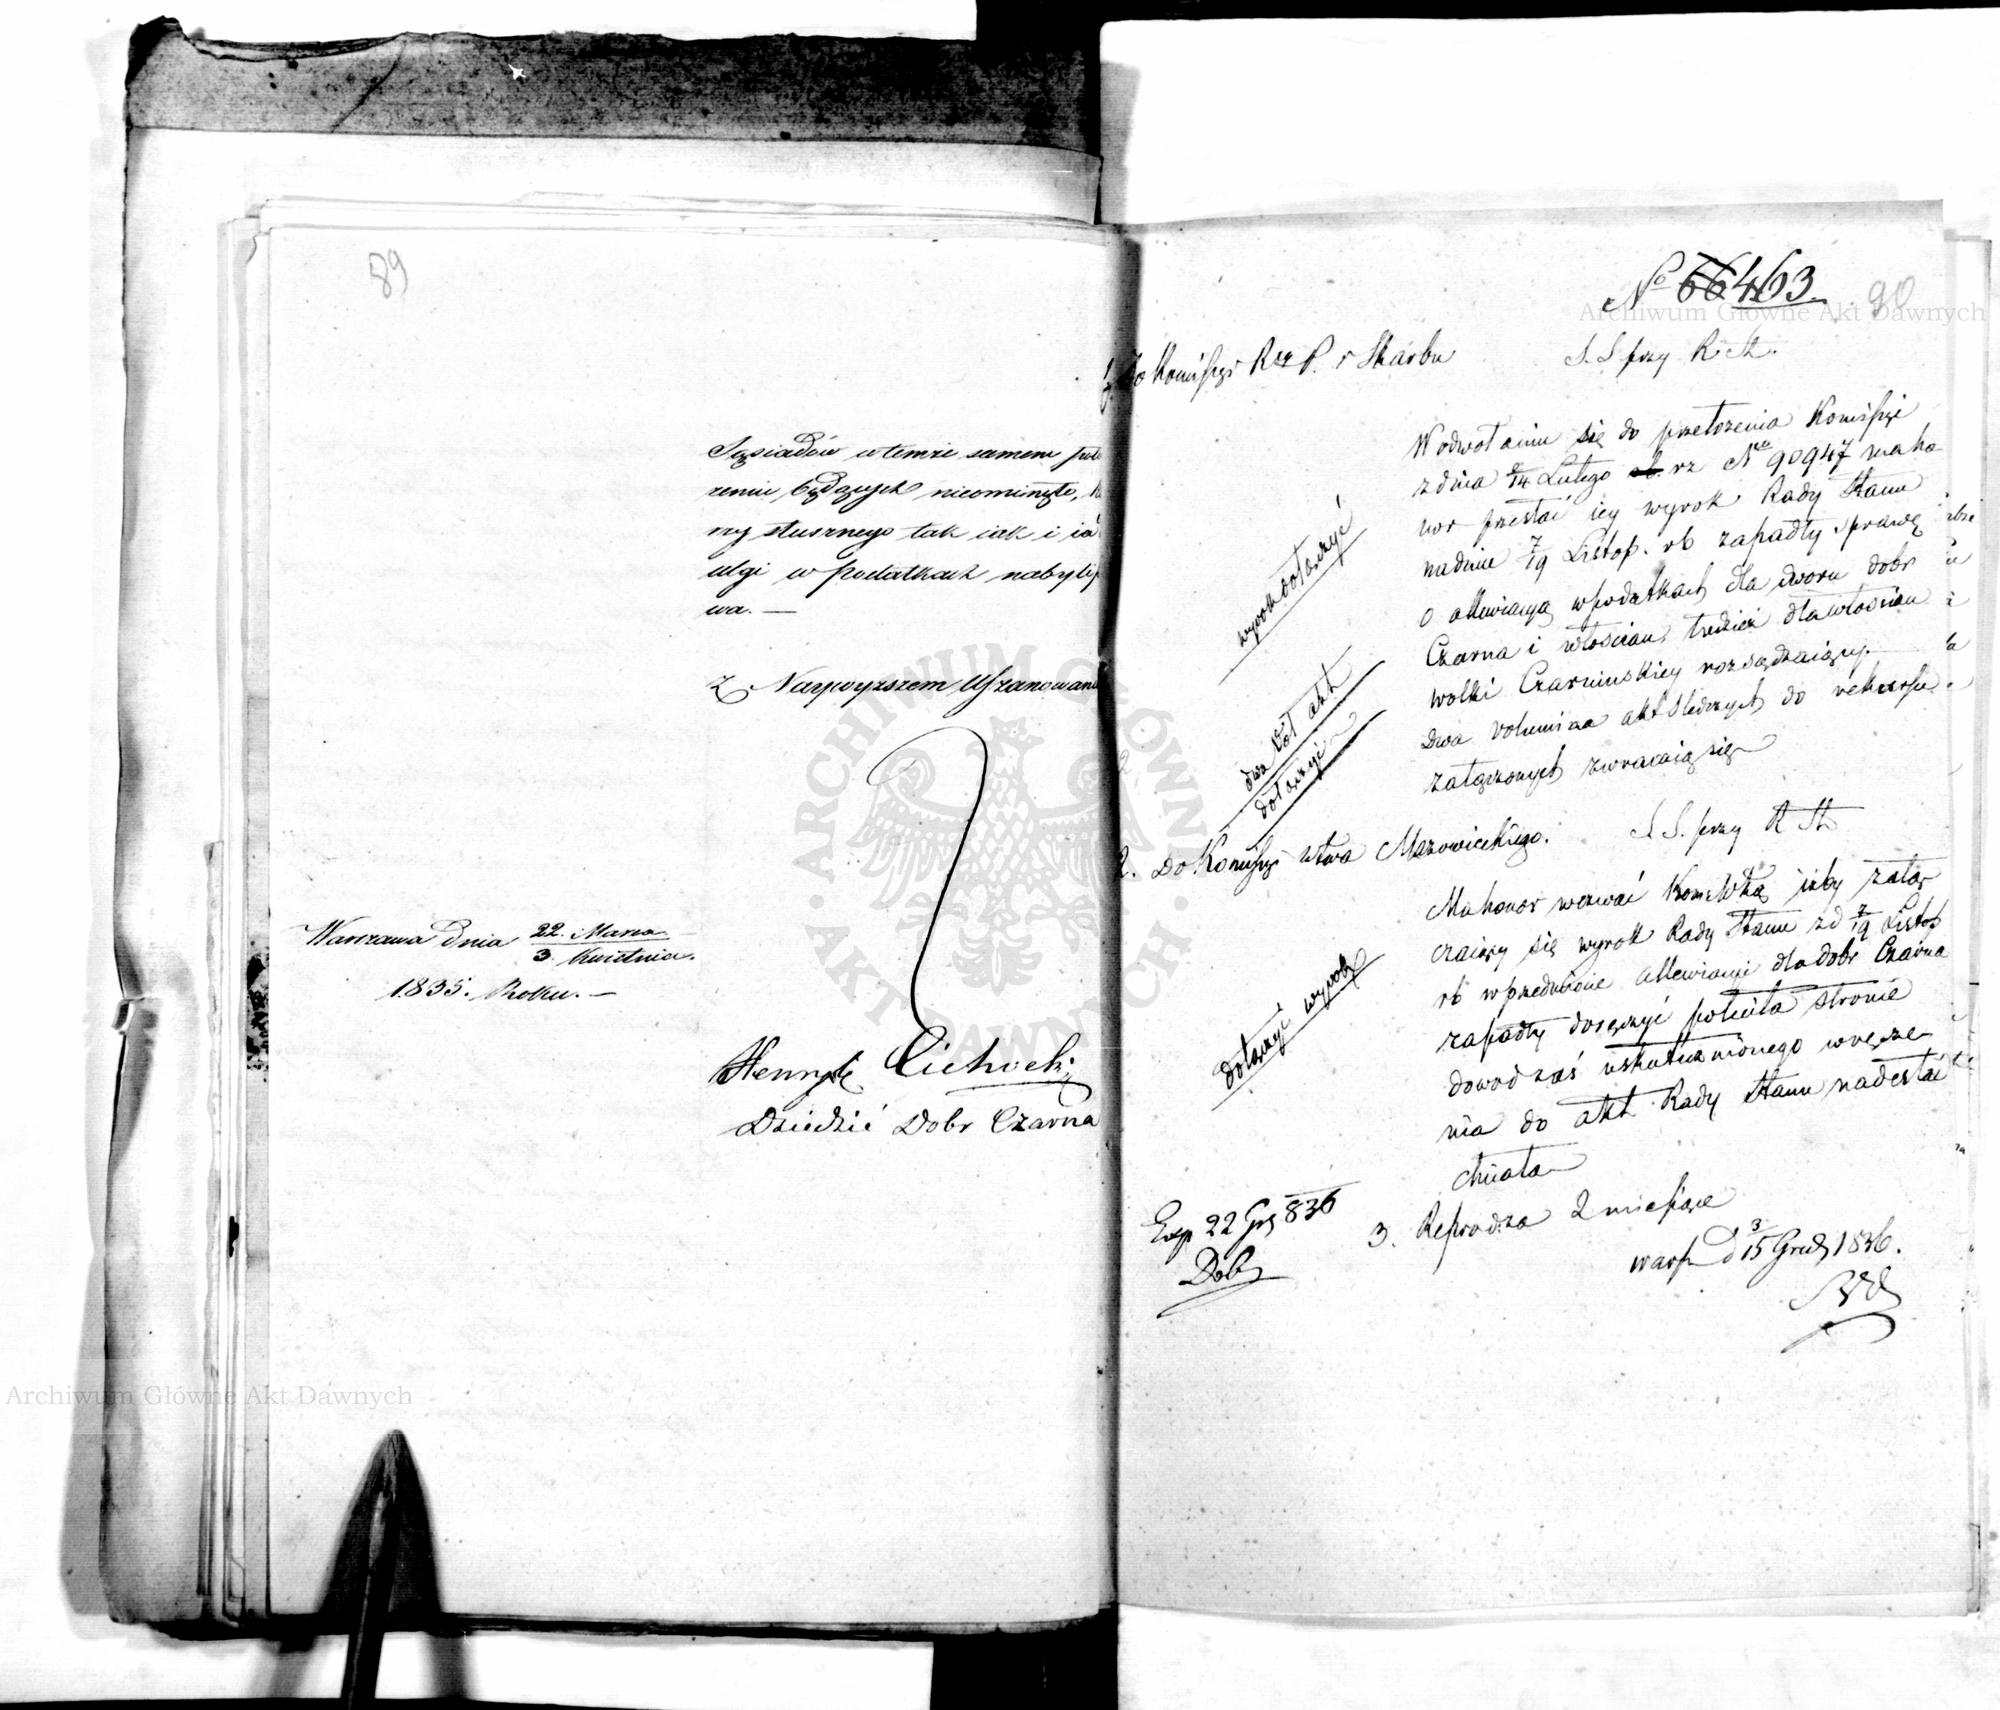 89
Sąsiadów w temże samem poło
żeniu będących nieominęło, k
ry słusznego tak iak i ia
ulgi w podatkach nabyli p
wa. —
Z Naywyższem Uszanowani
Warszawa dnia 22. Marca
3. Kwietnia.
1835. Roku. —
Henryk Cichocki
Dziedzic Dobr Czarna
No 66463.
90
1. Do Kommissyi Rzą P. i Skarbu
S. S przy R. St.
W odwołaniu się do przełożenia Kommissyi
z dnia 2/14 Lutego rz No 90947 ma ho
nor przesłać iey wyrok Rady Stanu
na dniu 7/19 Listop. rb zapadły sprawę
o allewiacyą w podatkach dla dworu dobr
Czarna i włościan, tudzież dla włościan
wolki Czarnińskiey rozsądzaiący.
Dwa volumina akt śledczych do rekursu
załączonych zwracaią się
wyrok dołączyć
dwa vol akt
dołączyć
2. Do Kommissyi Wtwa Mazowieckiego.
S. S. przy R St
Ma honor wezwać Kom. Wtką iżby załą
czaiący się wyrok Rady Stanu z d 7/19 Listop
rb w przedmiocie allewiacyi dla dobr Czarna
zapadły doręczyć poleciła stronie
dowod zaś uskutecznionego wręcze
nia do akt Rady Stanu nadesłać
chciała
dołączyć wyrok
3. Reprodza 2 miesiące
Exp 22 Grs 836
Dob
warsz d 3/15 Grud 1836.
Archiwum Główne Akt Dawnych
Archiwum Główne Akt Dawnych
ARCHIWUM GŁÓWNE AKT DAWNYCH